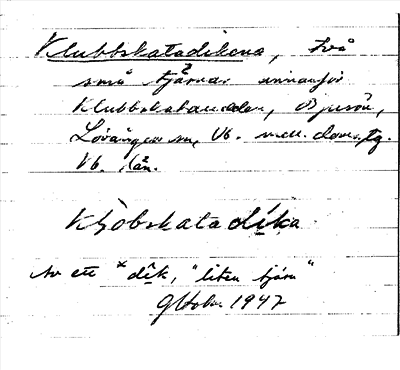 Klubbskatadikena, två
små tjärnar innanför
Klubbskataudden, Bjurön,
Lövångers sn, Vb. mell. doms. tg.
Vb. län.
Klòbskatadíka
Av ett * dîk, "liten tjärn"
Oktober 1947